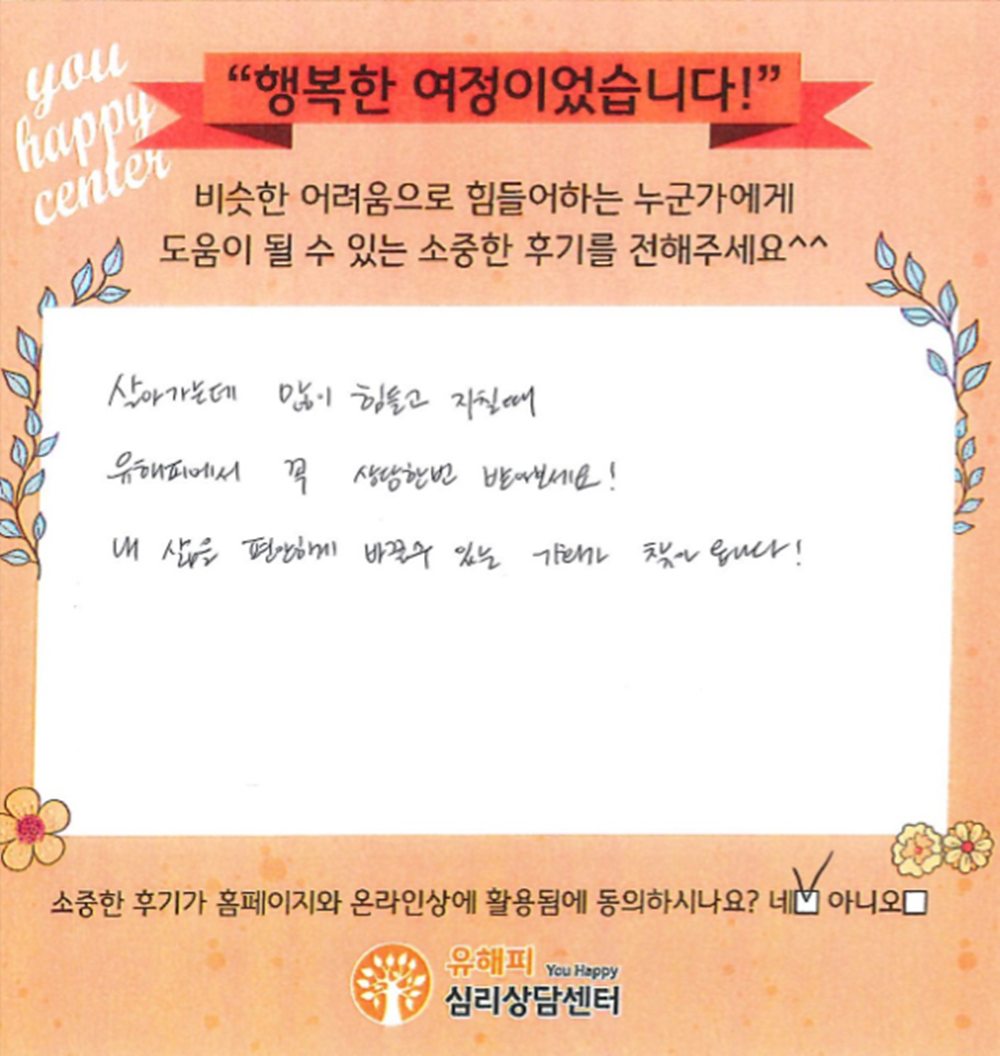 you
happy
center
“행복한 여정이었습니다!”
비슷한 어려움으로 힘들어하는 누군가에게
도움이 될 수 있는 소중한 후기를 전해주세요^^
살아가는데 많이 힘들고 지칠때
유해피에서 꼭 상담한번 받아보세요!
내 삶을 편안하게 바꿀수 있는 찾아 옵니다!
소중한 후기가 홈페이지와 온라인상에 활용됨에 동의하시나요? 네 아니오
유해피 You Happy
심리상담센터